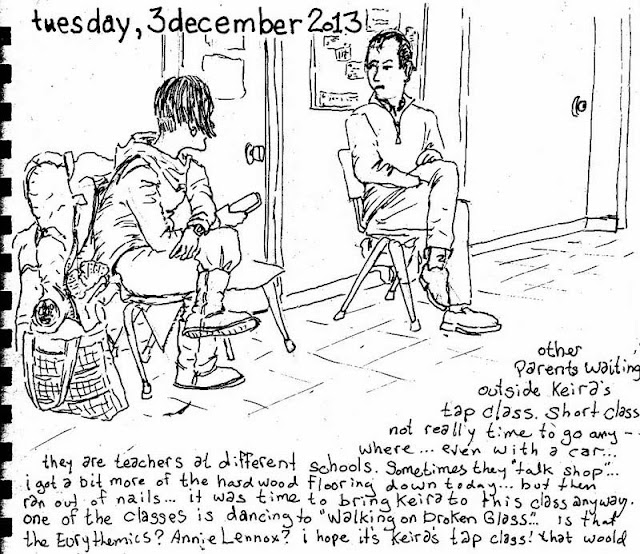 tuesday, 3 december 2013
other
parents waiting
outside Keira's
tap class. short class
not really time to go any-
where... even with a car...
they are teachers at different schools. Sometimes they "talk shop"...
i got a bit more of the hardwood flooring down today... but then
ran out of nails... it was time to bring Keira to this class anyway.
one of the classes is dancing to "Walking on Broken Glass"... is that
the Eurythemics? Annie Lennox? i hope it's Keira's tap class! that would